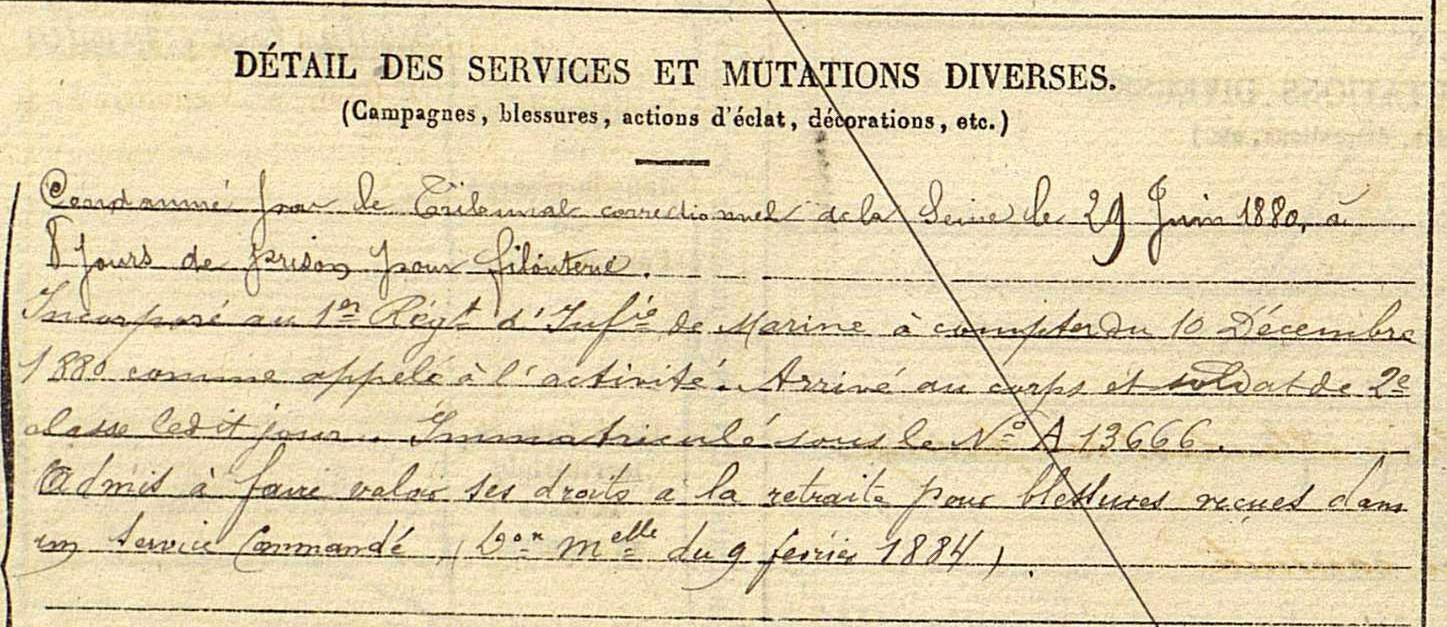 DÉTAIL DES SERVICES ET MUTATIONS DIVERSES.
(Campagnes, blessures, actions d'éclat, décorations, etc.)
Condamné par le Tribunal correctionnel de la Seine le 29 Juin 1880, à
8 jours de prison pour filouterie.
Incorporé au 1er Régt d'Infie de Marine à compter du 10 Décembre
1880 comme appelé à l'activité. Arrivé au corps et soldat de 2e
classe ledit jour. Immatriculé sous le No A 13666.
Admis à faire valoir ses droits a la retraite pour blessures reçues dans
un service Commandé, (Don Melle du 9 fevrier 1884)